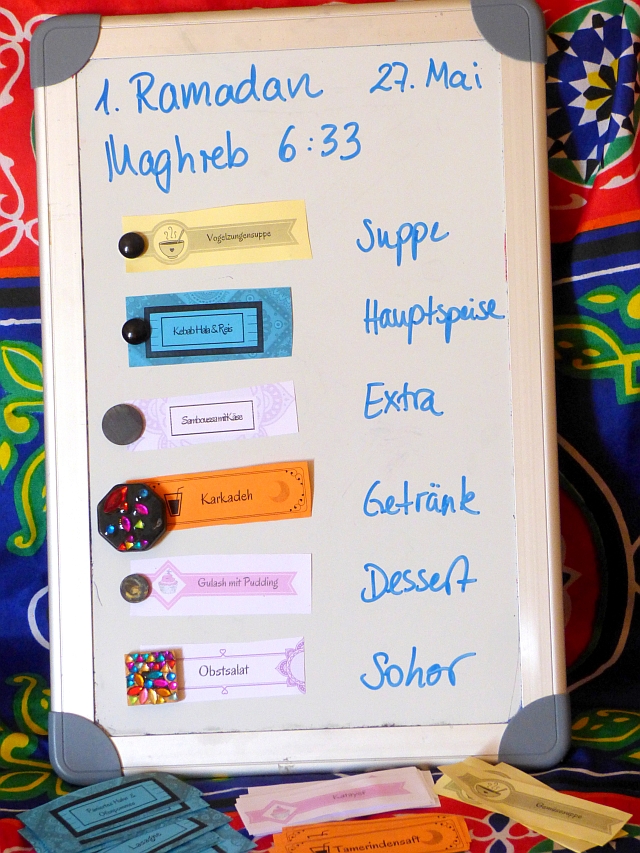 1. Ramadan 27. Mai
Maghreb 6:33
Vogelzungensuppe Suppe
Kebab Hala & Reis Hauptspeise
Sambousa mit Käse Extra
Karkadeh Getränke
Gulash mit Pudding Dessert
Obstsalat Sohor
Lasagne
Katayef
Tamerindensaft